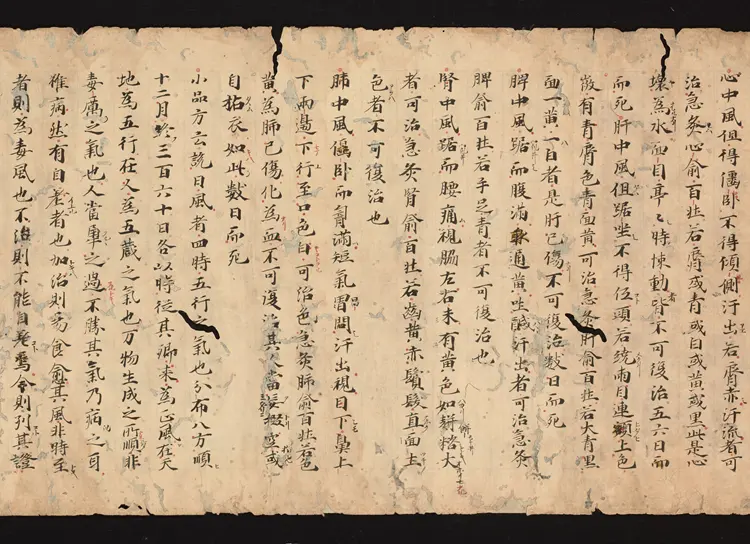 心中風但得偃臥不得傾側汗出若脣赤汗流者可
治急灸心俞百壯若脣或青或白或黃或黑此是心
壞為水面目亭〻時悚動者皆不可復治五六日而
而死肝中風但踞坐不得伍頭若繞兩目連額上色
微有青脣色青面黃可治急灸肝俞百壯若大青黑
面一黃一白者是肝已傷不可復治數日而死
脾中風踞而腹滿身通黃吐鹹汗出者可治急灸
脾俞百壯若手足青者不可復治也
腎中風踞而腰痛視脇左右未有黃色如餅粢大
者可治急灸腎俞百壯若齒黃赤鬢髮直面土
色者不可復治也
肺中風偃臥而胷滿短氣冒悶汗出視目下鼻上
下兩邊下行至口色白可治急灸肺俞百壯若色
黃為肺已傷化為血不可復治其人當髮掇空或
自拈衣如此數日而死
小品方云說曰風者四時五行之氣也分布八方順
十二月終三百六十日各以時從其鄉來為正風在天
地為五行在人為五藏之氣也万物生成之所順非
毒厲之氣也人當觸之過不勝其氣乃病之耳
雖病然有自差者也加治則易食愈其風非時至
者則為毒風也不治則不能自差焉今則列其證